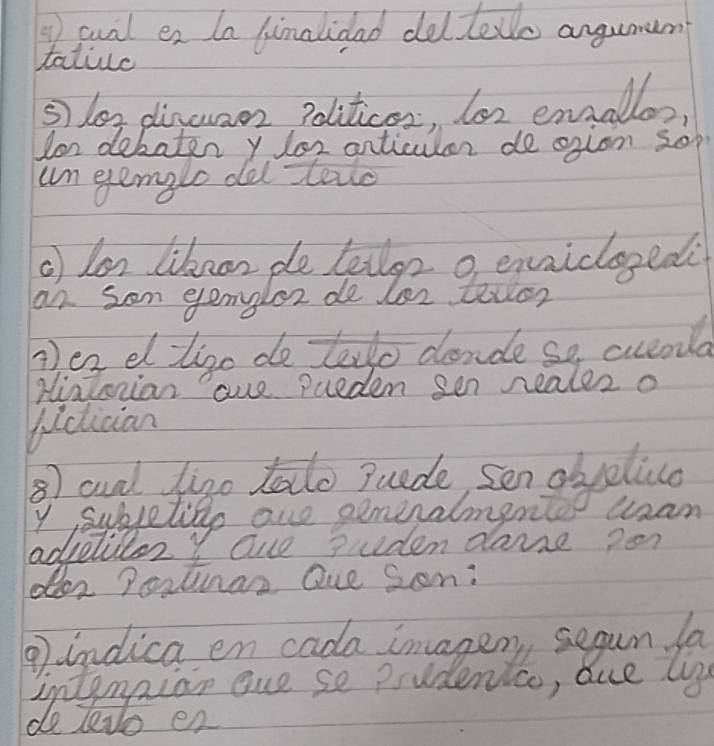 4) cual es la finalidad del texto argumen
tativo
5) los discursos Politicos, los ensallos,
los debates y los articulos de opion son
un ejemplo del texto
6) los libros de textos o enciclopedi
as son ejemplos de los textos
7) es el tipo de texto donde se cuenta
Historias que Pueden ser reales o
ficticias
8) cual tipo texto Puede ser objetivo
y subjetivo que generalmente usan
adjetivos y que Pueden darse por
dos Posturas Que son:
9) indica en cada imagen, segun la
intension que se, que tipo
de texto es